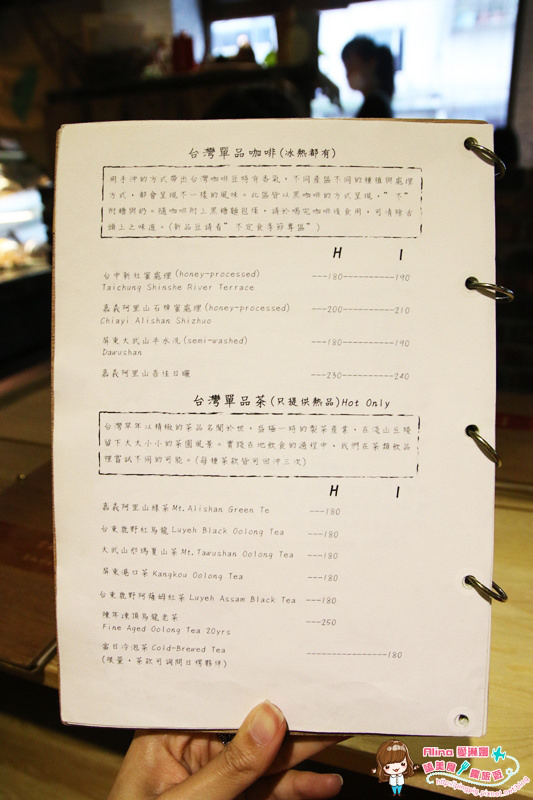 台灣單品咖啡(冰熱都有)
用手沖的方式帶出台灣咖啡豆特有香氣，不同產區不同的種植與處理
方式，都會呈現不一樣的風味。此區皆以黑咖啡的方式呈現，"不"
附糖與奶。隨咖啡附上黑糖麵包條，請於喝完咖啡後食用，可清除舌
頭上之味道。(新品豆請看"不定食季節專區")
H I
台中新社蜜處理(honey-processed) ---180-----------190
Taichung Shinshe River Terrace
嘉義阿里山石棹蜜處理(honey-processed) ---200-----------210
Chiayi Alishan Shizhuo
屏東大武山半水洗(semi-washed) ---180-----------190
Dawushan
嘉義阿里山香佳日曬 ---230-----------240
台灣單品茶(只提供熱品)Hot Only
台灣早年以精緻的茶品名聞於世，盛極一時的製茶產業，在淺山丘陵
留下大大小小的茶園風景。實踐在地飲食的過程中，我們在茶類飲品
裡嘗試不同的可能。(每種茶飲皆可回沖三次)
H I
嘉義阿里山綠茶Mt.Alishan Green Te ---180
台東鹿野紅烏龍 Luyeh Black Oolong Tea ---180
大武山伍瑪賀山茶Mt.Tawushan Oolong Tea ---180
屏東港口茶Kangkou Oolong Tea ---180
台東鹿野阿薩姆紅茶 Luyeh Assam Black Tea ---180
陳年凍頂烏龍老茶 ---250
Fine Aged Oolong Tea 20yrs
當日冷泡茶Cold-Brewed Tea -----------------180
(限量，茶款可詢問日楞夥伴)
Alina 愛琳娜
嗑美食 瘋旅遊